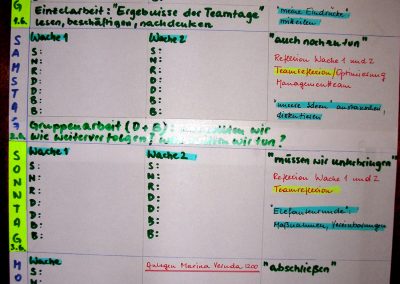 G
1.6.
Einzelarbeit: "Ergebnisse der Teamtage"
lesen, beschäftigen, nachdenken
"meine Eindrücke"
mitteilen
SAMSTAG
2.6.
Wache 1
S:
N:
R:
D:
D:
B:
B:
Wache 2
S:
N:
R:
D:
D:
B:
B:
"auch noch zu tun"
Reflexion Wache 1 und 2
Teamreflexion/Optimierung
Managementteam
"unsere Ideen" austauschen,
diskutieren
Gruppenarbeit (D+E): wir
wie weiterverfolgen? wir tun?
SONNTAG
3.6.
Wache 1
S:
N:
R:
D:
D:
B:
B:
Wache 2
S:
N:
R:
D:
D:
B:
B:
"müssen wir unterbringen"
Reflexion Wache 1 und 2
Teamreflexion
"Elefantenrunde":
Maßnahmen, Vereinbarungen
MO
Wache
S:
N:
Anlegen Marina 1200
"abschließen"